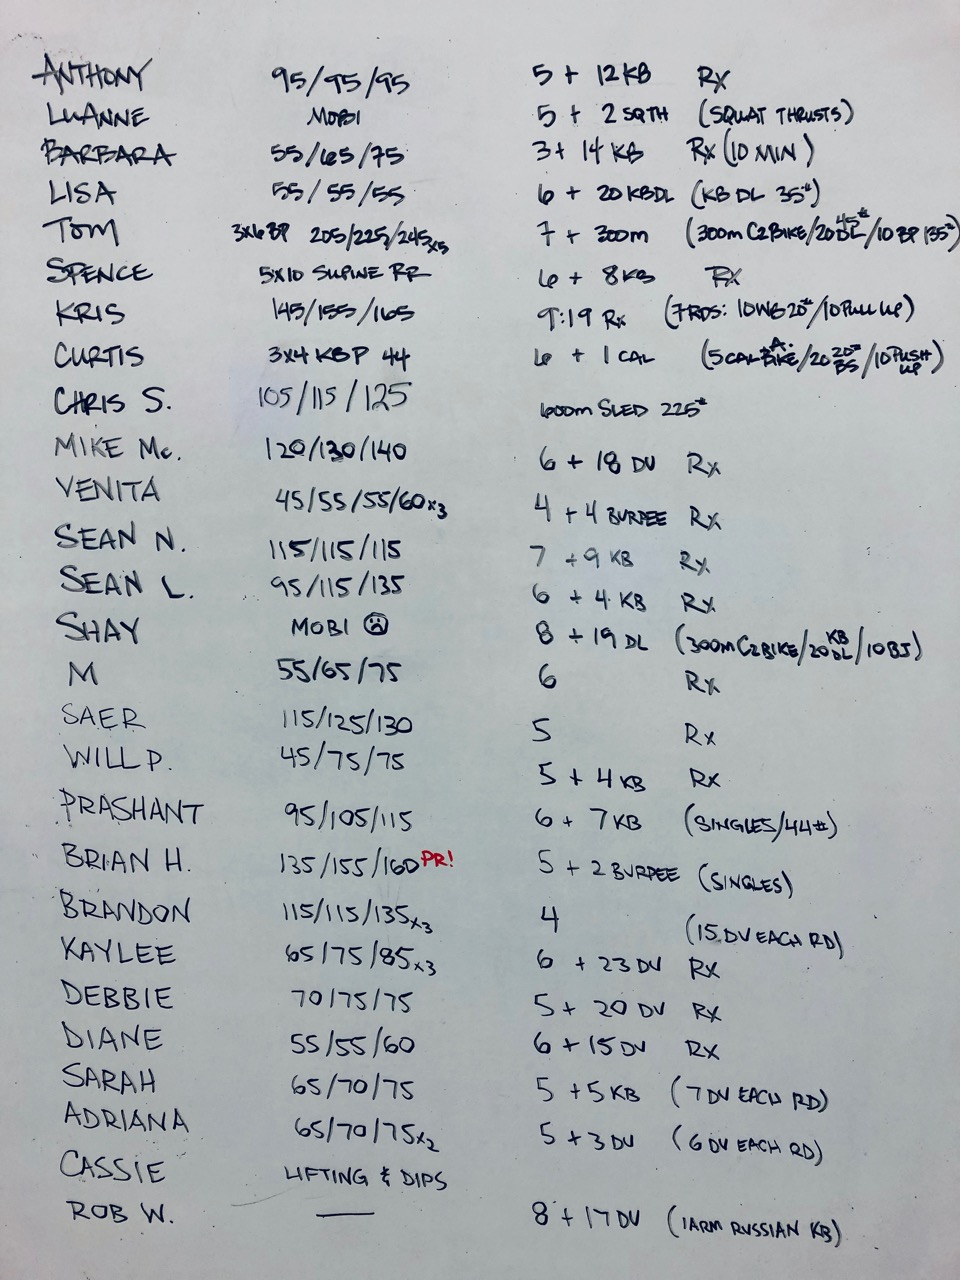 ANTHONY 95/95/95 5 + 12 KB Rx
LUANNE MOBI 5 + 2 SQTH (SQUAT THRUSTS)
BARBARA 55/65/75 3 + 14 KB Rx (10 MIN)
LISA 55/55/55 6 + 20 KBDL (KB DL 35#)
TOM 3x6 BP 205/225/245x5 7 + 300m (300m C2 BIKE/20 45# DL/10 BP 135#)
SPENCE 5x10 SUPINE RR 6 + 8 KB Rx
KRIS 145/155/165 9:19 Rx (7 RDS: 10 WB 20#/10 PULL UP)
CURTIS 3x4 KBP 44 6 + 1 CAL (5 CAL A. BIKE/20 20# BS/10 PUSH UP)
CHRIS S. 105/115/125 600m SLED 225#
MIKE Mc. 120/130/140 6 + 18 DU Rx
VENITA 45/55/55/60x3 4 + 4 BURPEE Rx
SEAN N. 115/115/115 7 + 9 KB Rx
SEAN L. 95/115/135 6 + 4 KB Rx
SHAY MOBI ☹ 8 + 19 DL (300m C2 BIKE/20 KB DL/10 BJ)
M 55/65/75 6 Rx
SAER 115/125/130 5 Rx
WILL P. 45/75/75 5 + 4 KB Rx
PRASHANT 95/105/115 6 + 7 KB (SINGLES/44#)
BRIAN H. 135/155/160 PR! 5 + 2 BURPEE (SINGLES)
BRANDON 115/115/135x3 4 (15 DU EACH RD)
KAYLEE 65/75/85x3 6 + 23 DU Rx
DEBBIE 70/75/75 5 + 20 DU Rx
DIANE 55/55/60 6 + 15 DU Rx
SARAH 65/70/75 5 + 5 KB (7 DU EACH RD)
ADRIANA 65/70/75x2 5 + 3 DU (6 DU EACH RD)
CASSIE LIFTING & DIPS
ROB W. — 8 + 17 DU (1 ARM RUSSIAN KB)